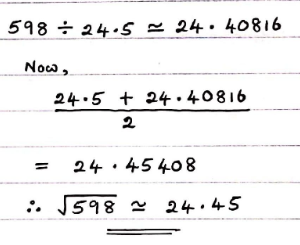 598 ÷ 24·5 ≃ 24·40816
Now,
24·5 + 24·40816
2
= 24·45408
∴ √598 ≃ 24·45